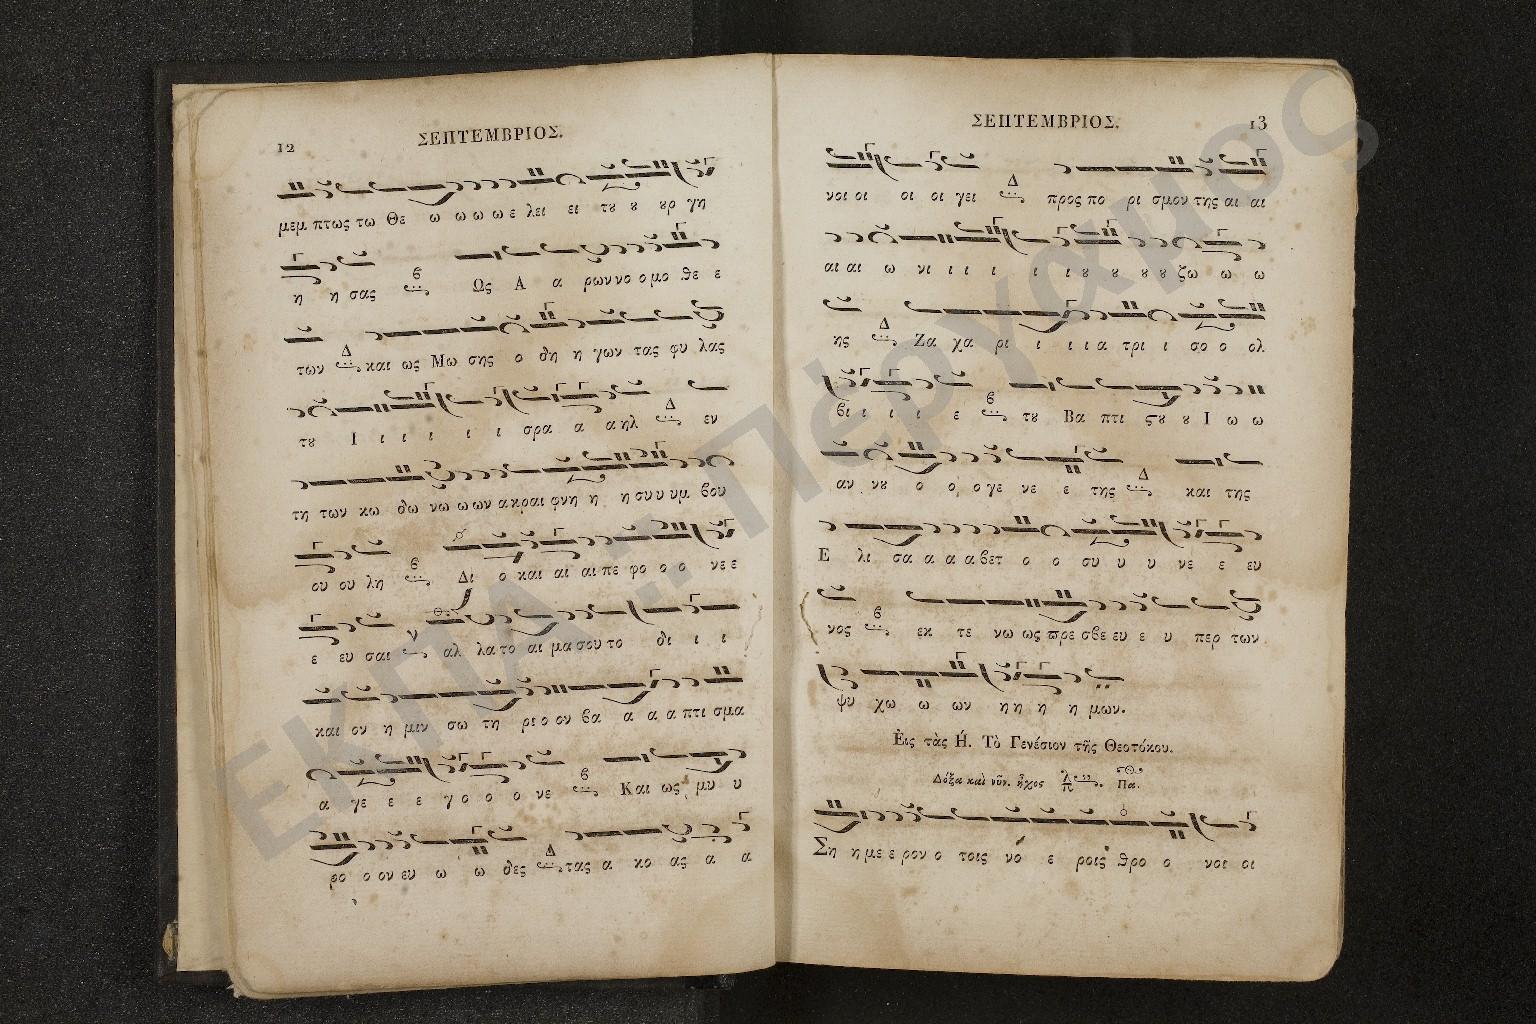 12
ΣΕΠΤΕΜΒΡΙΟΣ.
μεμ πτως τω Θε ω ω ω ω ε λει ει τȣ ȣ ȣρ γη
η η σας Ως Α α ρων νο ο μο θε ε
των Δ και ως Μω σης ο δη η γων τας φυ λας
τȣ Ι ι ι ι ι ι ι σρα α α ηλ Δ εν
τη των κω δω νω ω ων α κραι φνη η η συ υ υμ βου
ου ου λη Δι ο και αι αι πε φο ο ο νε ε
ε ευ σαι αλ λα το αι μα σου το δι ι ι
και ον η μιν σω τη ρι ο ον βα α α α πτι σμα
α γε ε ε γο ο ο ο νε Και ως μυ υ
ρο ο ον ευ ω ω δες Δ τας α κο ας α α
ΣΕΠΤΕΜΒΡΙΟΣ.
13
νοι οι οι οι γει Δ προς πο ρι σμον της αι αι
αι αι ω νι ι ι ι ι ι ȣ ȣ ȣ ȣ ζω ω ω
ης Δ Ζα χα ρι ι ι ι α τρι ι σο ο ολ
βι ι ι ι ε τȣ Βα πτι ϛȣ ȣ Ι ω ω
αν νȣ ο ο ο γε νε ε της Δ και της
Ε λι σα α α α βετ ο ο συ υ υ νε ε ευ
νος εκ τε νω ως πρε σβε ευ ε υ περ των
ψυ χω ω ων η η η η μων.
Εἰς τὰς Η΄. Τὸ Γενέσιον τῆς Θεοτόκου.
Δόξα καὶ νῦν. ἦχος Πα.
Ση η με ε ρον ο τοις νο ε ροις θρο ο νοι οι
ΕΚΠΑ :: Πέργαμος